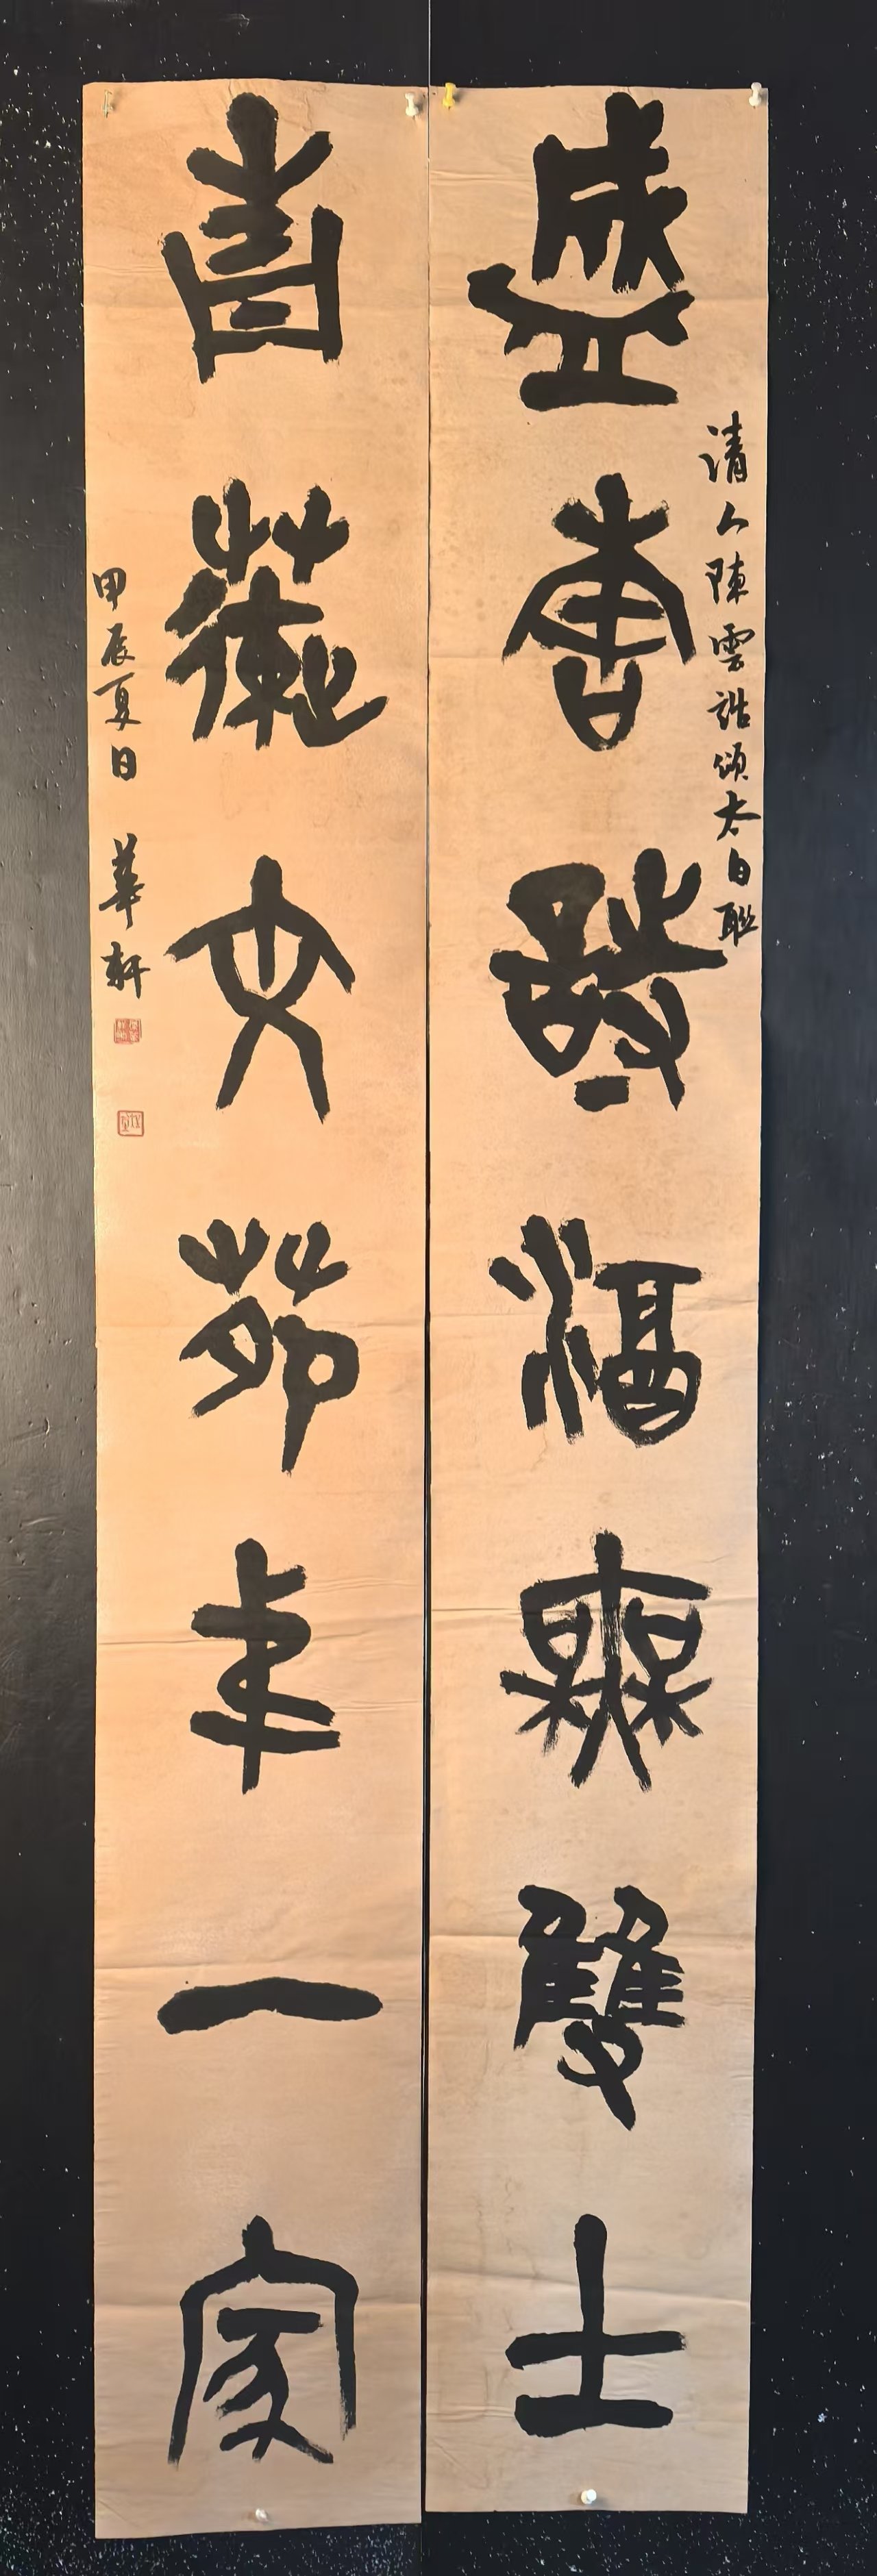 清人陳雲誥頌太白聯
盛唐詩酒無雙士
青蓮文苑弟一家
甲辰夏日 華軒